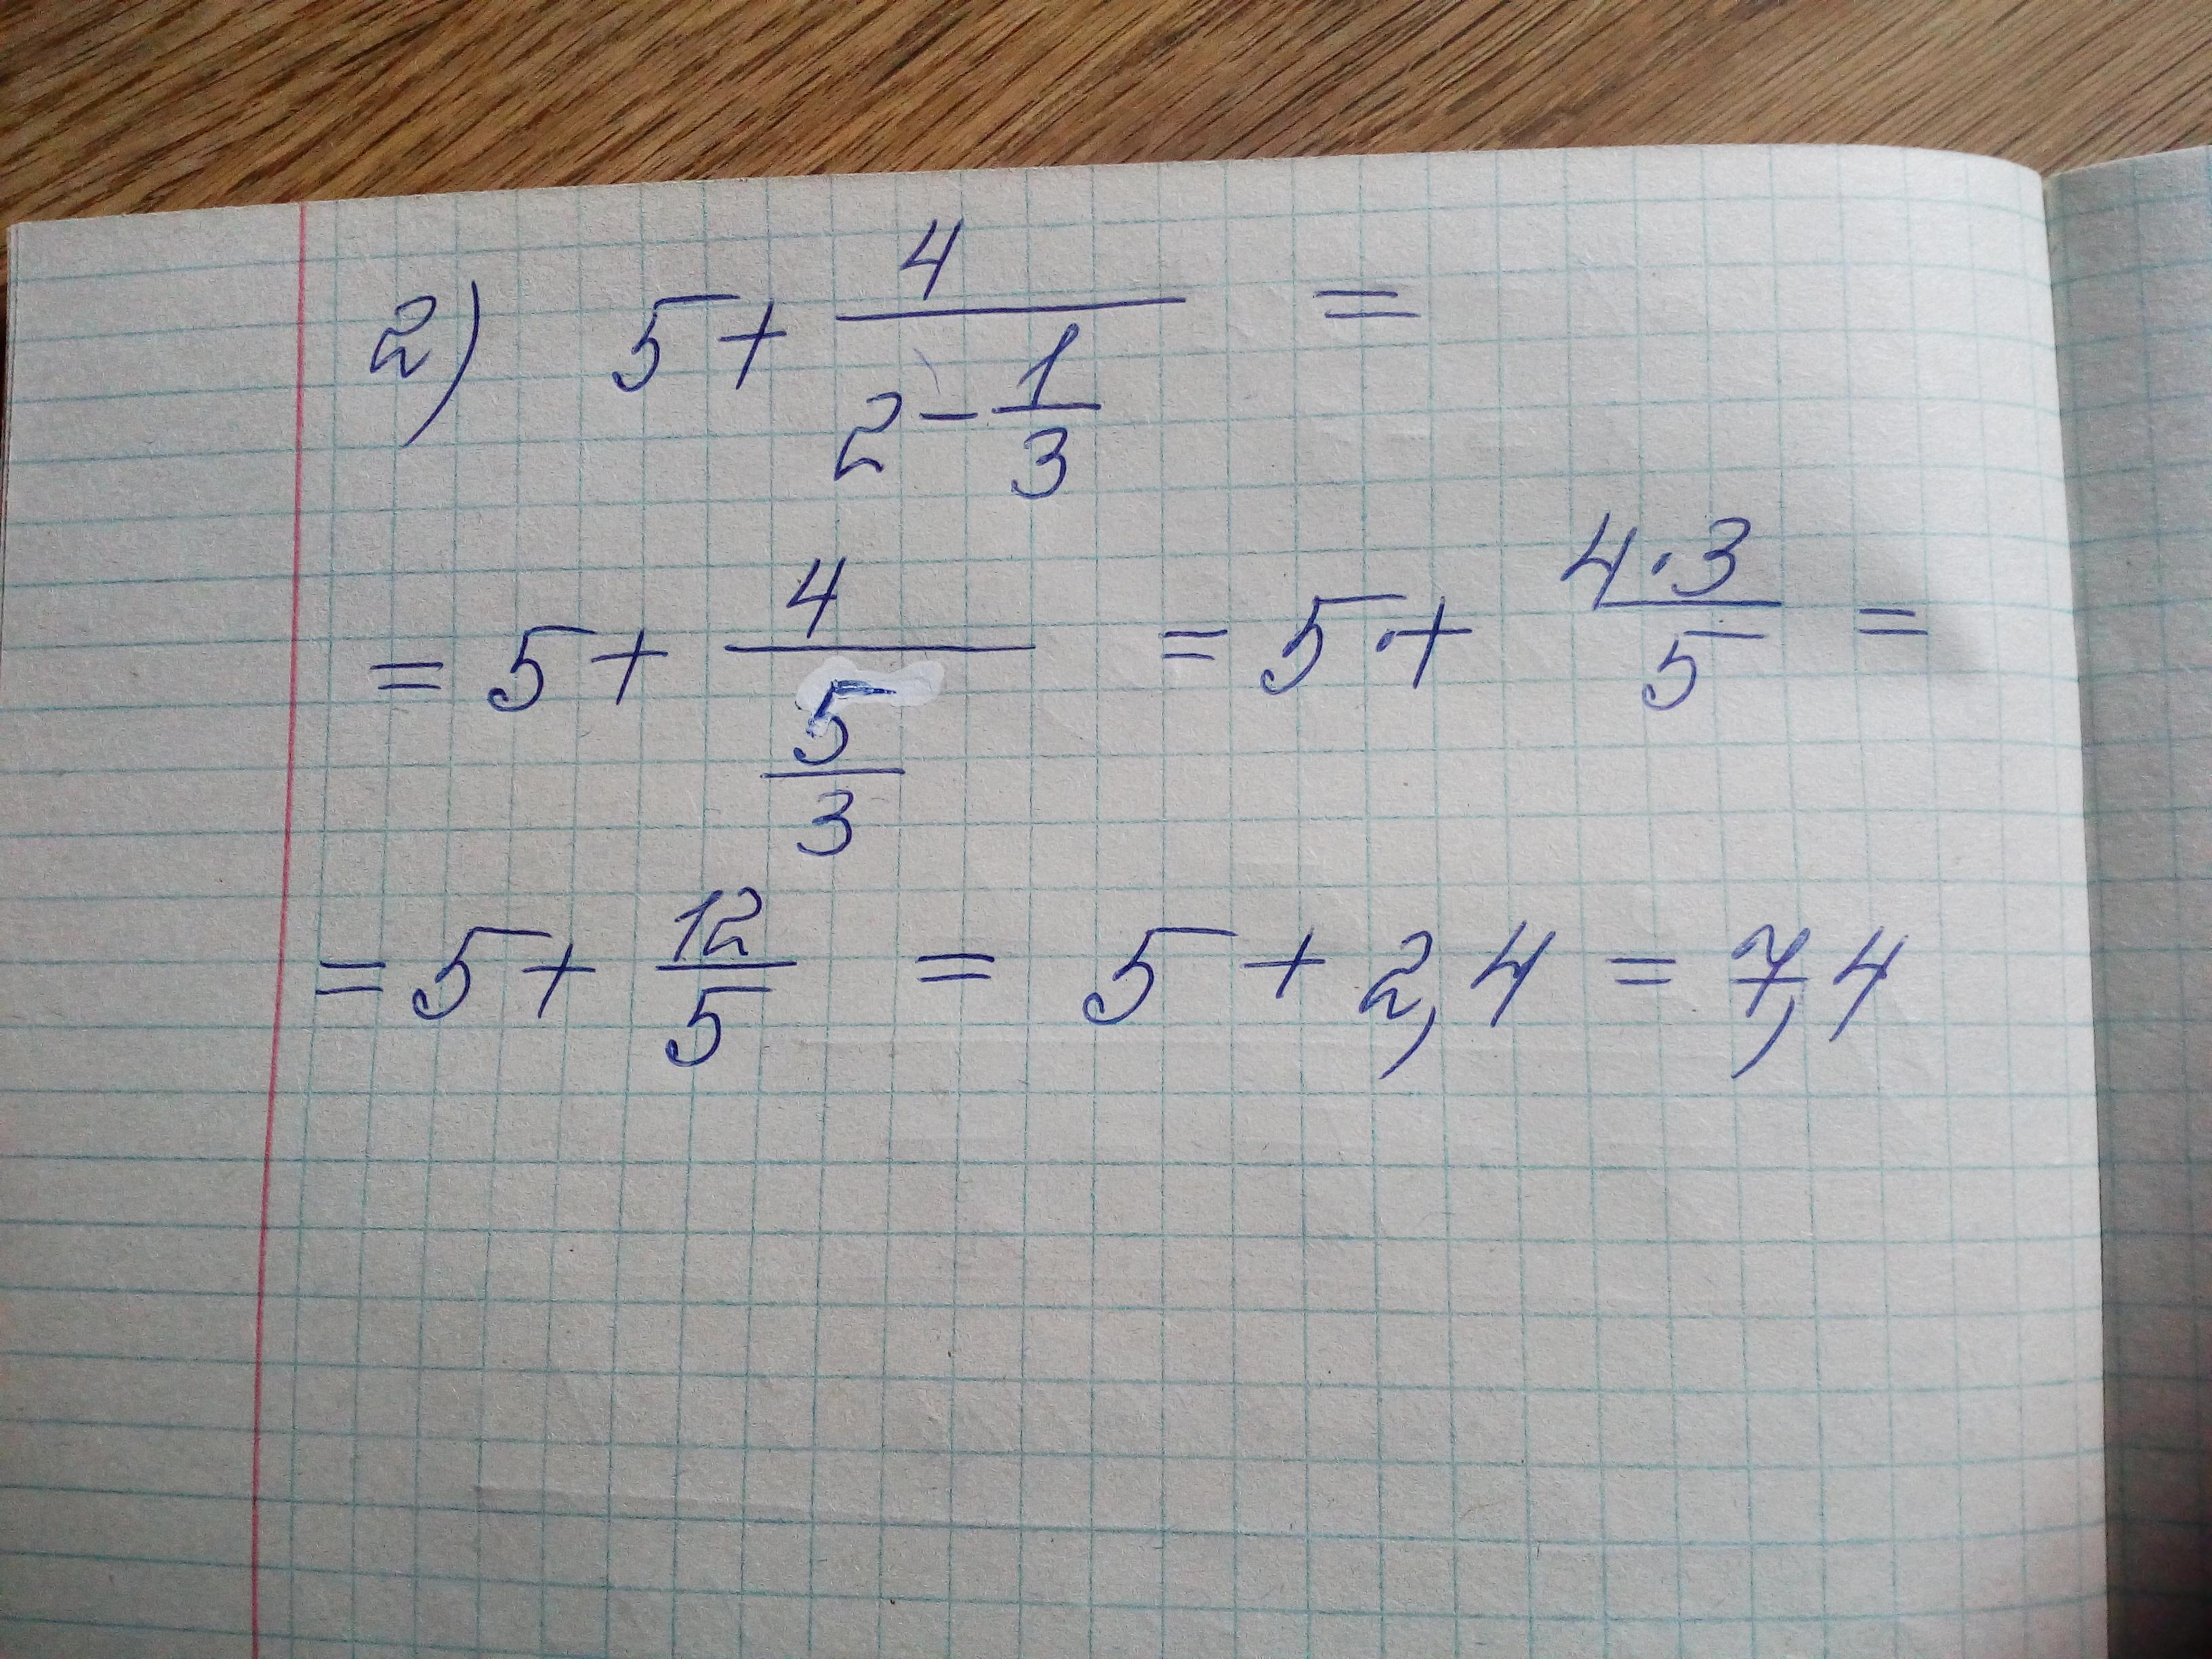 2) 5 + 4/(2 - 1/3) =
= 5 + 4/(5/3) = 5 + 4·3/5 =
= 5 + 12/5 = 5 + 2,4 = 7,4